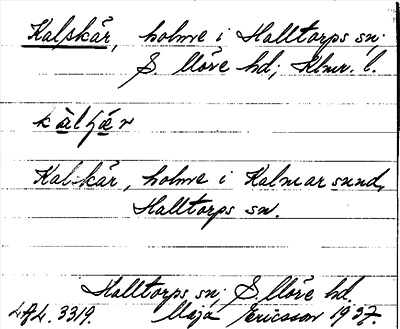 Kalskär, holme i Halltorps sn;
S. Möre hd; Klmr. l.
kàlʃær
Kalskär, holme i Kalmarsund,
Halltorps sn.
Halltorps sn; S. Möre hd.
LAL. 3319. Maja Ericsson 1937.